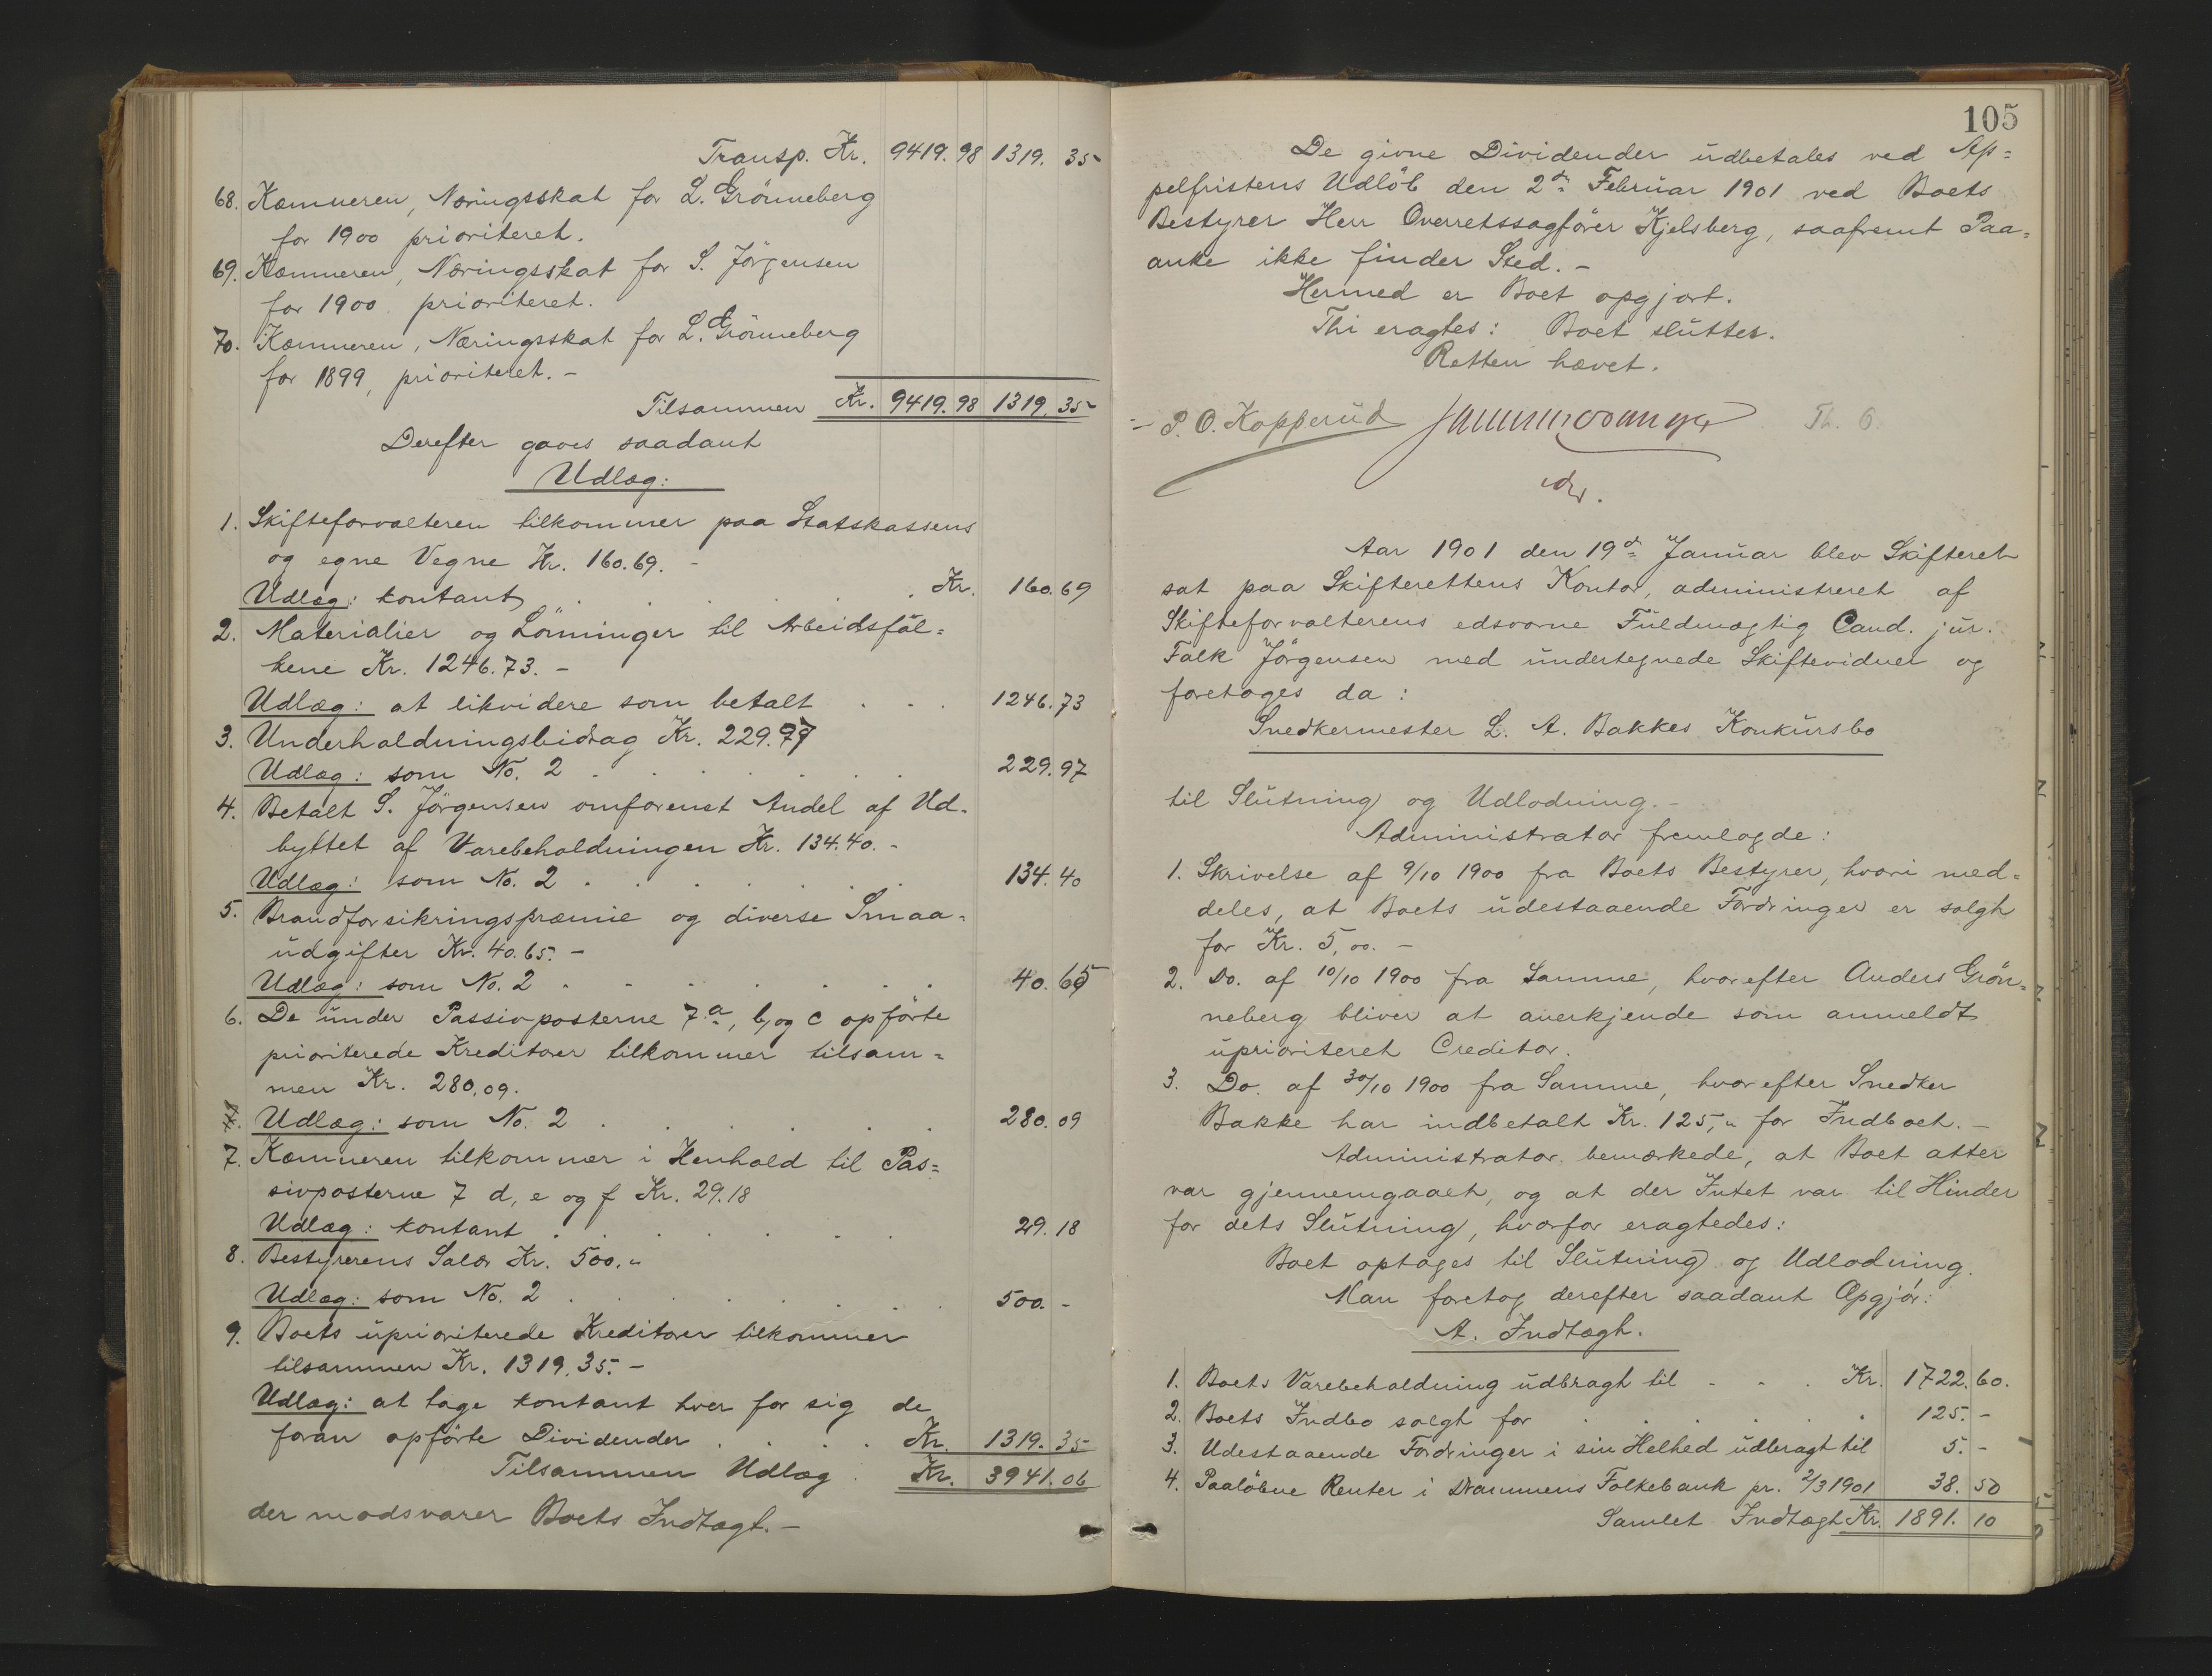 Transp. Kr. 9419.98 1319.35
68. Kæmneren, Næringsskat for L. Grönneberg
for 1900 prioriteret.
69. Kæmneren, Næringsskat for S. Jörgensen
for 1900 prioriteret.
70. Kæmneren, Næringsskat for L. Grönneberg
for 1899, prioriteret. -
Tilsammen Kr. 9419.98 1319.35
Derefter gaves saadant
Udlæg:
1. Skifteforvalteren tilkommer paa Statskassens
og egne Vegne Kr. 160.69. -
Udlæg: kontant . . . . . Kr. 160.69
2. Materialier og Lönninger til Arbeidsfol=
kene Kr. 1246.73. -
Udlæg: at likvidere som betalt . . . 1246.73
3. Underholdningsbidrag Kr. 229.97
Udlæg: som No. 2 . . . . . . 229.97
4. Betalt S. Jörgensen omforenet Andel af Ud-
byttet af Varebeholdningen Kr. 134.40. -
Udlæg: som No. 2 . . . . . . 134.40
5. Brandforsikringspræmie og diverse Smaa=
udgifter Kr. 40.65. -
Udlæg: som No. 2 . . . . . . 40.65
6. De under Passivposterne 7 a, b, og c opförte
prioriterede Kreditorer tilkommer tilsam=
men Kr. 280.09.
Udlæg: som No. 2 . . . . . . 280.09
7. Kæmneren tilkommer i Henhold til Pas=
sivposterne 7 d, e og f Kr. 29.18
Udlæg: kontant . . . . . . 29.18
8. Bestyrerens Salær Kr. 500.„
Udlæg: som No. 2 . . . . . . 500. -
9. Boets uprioriterede Kreditorer tilkommer
tilsammen Kr. 1319.35. -
Udlæg: at tage kontant hver for sig de
foran opförte Dividender . . . . Kr. 1319.35
Tilsammen Udlæg . Kr. 3941.06
der modsvarer Boets Indtægt. -
105
De givne Dividender udbetales ved Ap=
pelfristens Udlöb den 2den Februar 1901 ved Boets
Bestyrer Herr Overretssagförer Kjelsberg, saafremt Paa=
anke ikke finder Sted. -
Hermed er Boet opgjort.
Thi eragtes: Boet sluttes.
Retten hævet.
P. O. Kopperud Th. O.
Aar 1901 den 19de Januar blev Skifteret
sat paa Skifterettens Kontor, administreret af
Skifteforvalterens edsvorne Fuldmægtig Cand. jur.
Falk Jörgensen med undertegnede Skiftevidner og
foretoges da:
Snedkermester L. A. Bakkes Konkursbo
til Slutning og Udlodning. -
Administrator fremlagde:
1. Skrivelse af 9/10 1900 fra Boets Bestyrer, hvori med=
deles, at Boets udestaaende Fordringer er solgt
for Kr. 5,00. -
2. Do. af 10/10 1900 fra Samme, hvorefter Anders Grön=
neberg bliver at anerkjende som anmeldt
uprioriteret Creditor.
3. Do. af 30/10 1900 fra Samme, hvorefter Snedker
Bakke har indbetalt Kr. 125,„ for Indboet. -
Administrator bemærkede, at Boet atter
var gjennemgaaet, og at der Intet var til Hinder
for dets Slutning, hvorfor eragtedes:
Boet optages til Slutning og Udlodning.
Man foretog derefter saadant Opgjör:
A. Indtægt.
1. Boets Varebeholdning udbragt til . . . Kr. 1722.60.
2. Boets Indbo solgt for . . . . . . 125. -
3. Udestaaende Fordringer i sin Helhed udbragt til 5. -
4. Paalöbne Renter i Drammens Folkebank pr. 2/3 1901 38.50
Samlet Indtægt Kr. 1891.10